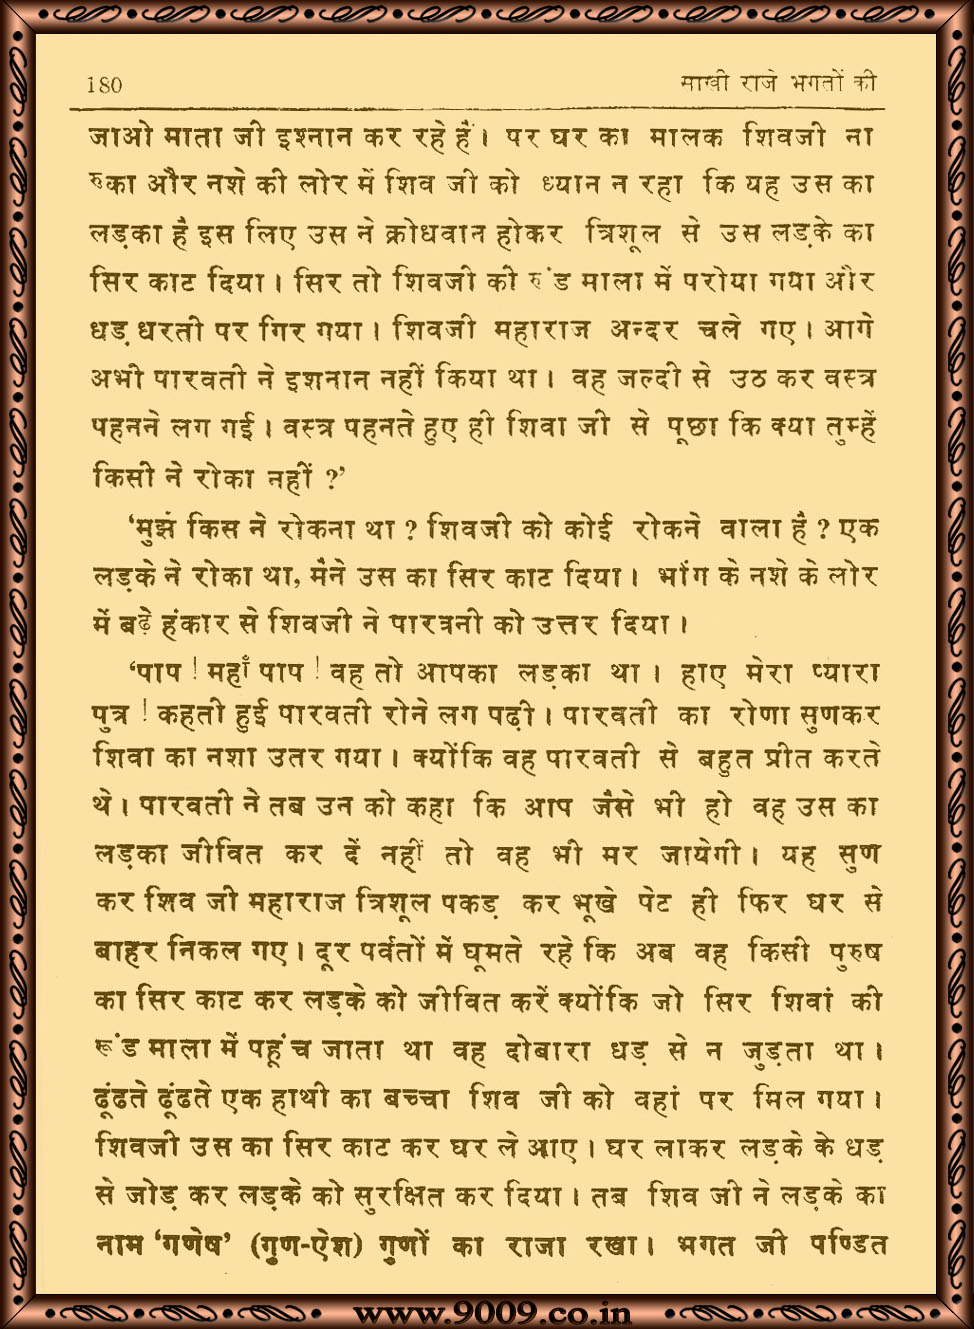 180 साखी राजे भगतों की
जाओ माता जी इश्नान कर रहे हैं। पर घर का मालक शिवजी ना
रुका और नशे की लोर में शिव जी को ध्यान न रहा कि यह उस का
लड़का है इस लिए उस ने क्रोधवान होकर त्रिशूल से उस लड़के का
सिर काट दिया। सिर तो शिवजी की रुंड माला में परोया गया और
धड़ धरती पर गिर गया। शिवजी महाराज अन्दर चले गए। आगे
अभी पारवती ने इशनान नहीं किया था। वह जल्दी से उठ कर वस्त्र
पहनने लग गई। वस्त्र पहनते हुए ही शिवा जी से पूछा कि क्या तुम्हें
किसी ने रोका नहीं ?’
‘मुझे किस ने रोकना था ? शिवजी को कोई रोकने वाला है ? एक
लड़के ने रोका था, मैंने उस का सिर काट दिया। भांग के नशे के लोर
में बढ़े हंकार से शिवजी ने पारवती को उत्तर दिया।
‘पाप ! महाँ पाप ! वह तो आपका लड़का था। हाए मेरा प्यारा
पुत्र ! कहती हुई पारवती रोने लग पढ़ी। पारवती का रोणा सुणकर
शिवा का नशा उतर गया। क्योंकि वह पारवती से बहुत प्रीत करते
थे। पारवती ने तब उन को कहा कि आप जैसे भी हो वह उस का
लड़का जीवित कर दें नहीं तो वह भी मर जायेगी। यह सुण
कर शिव जी महाराज त्रिशूल पकड़ कर भूखे पेट ही फिर घर से
बाहर निकल गए। दूर पर्वतों में घूमते रहे कि अब वह किसी पुरुष
का सिर काट कर लड़के को जीवित करें क्योंकि जो सिर शिवां की
रूंड माला में पहूंच जाता था वह दोबारा धड़ से न जुड़ता था।
ढूंढते ढूंढते एक हाथी का बच्चा शिव जी को वहां पर मिल गया।
शिवजी उस का सिर काट कर घर ले आए। घर लाकर लड़के के धड़
से जोड़ कर लड़के को सुरक्षित कर दिया। तब शिव जी ने लड़के का
नाम ‘गणेष’ (गुण-ऐश) गुणों का राजा रखा। भगत जी पण्डित
www.9009.co.in